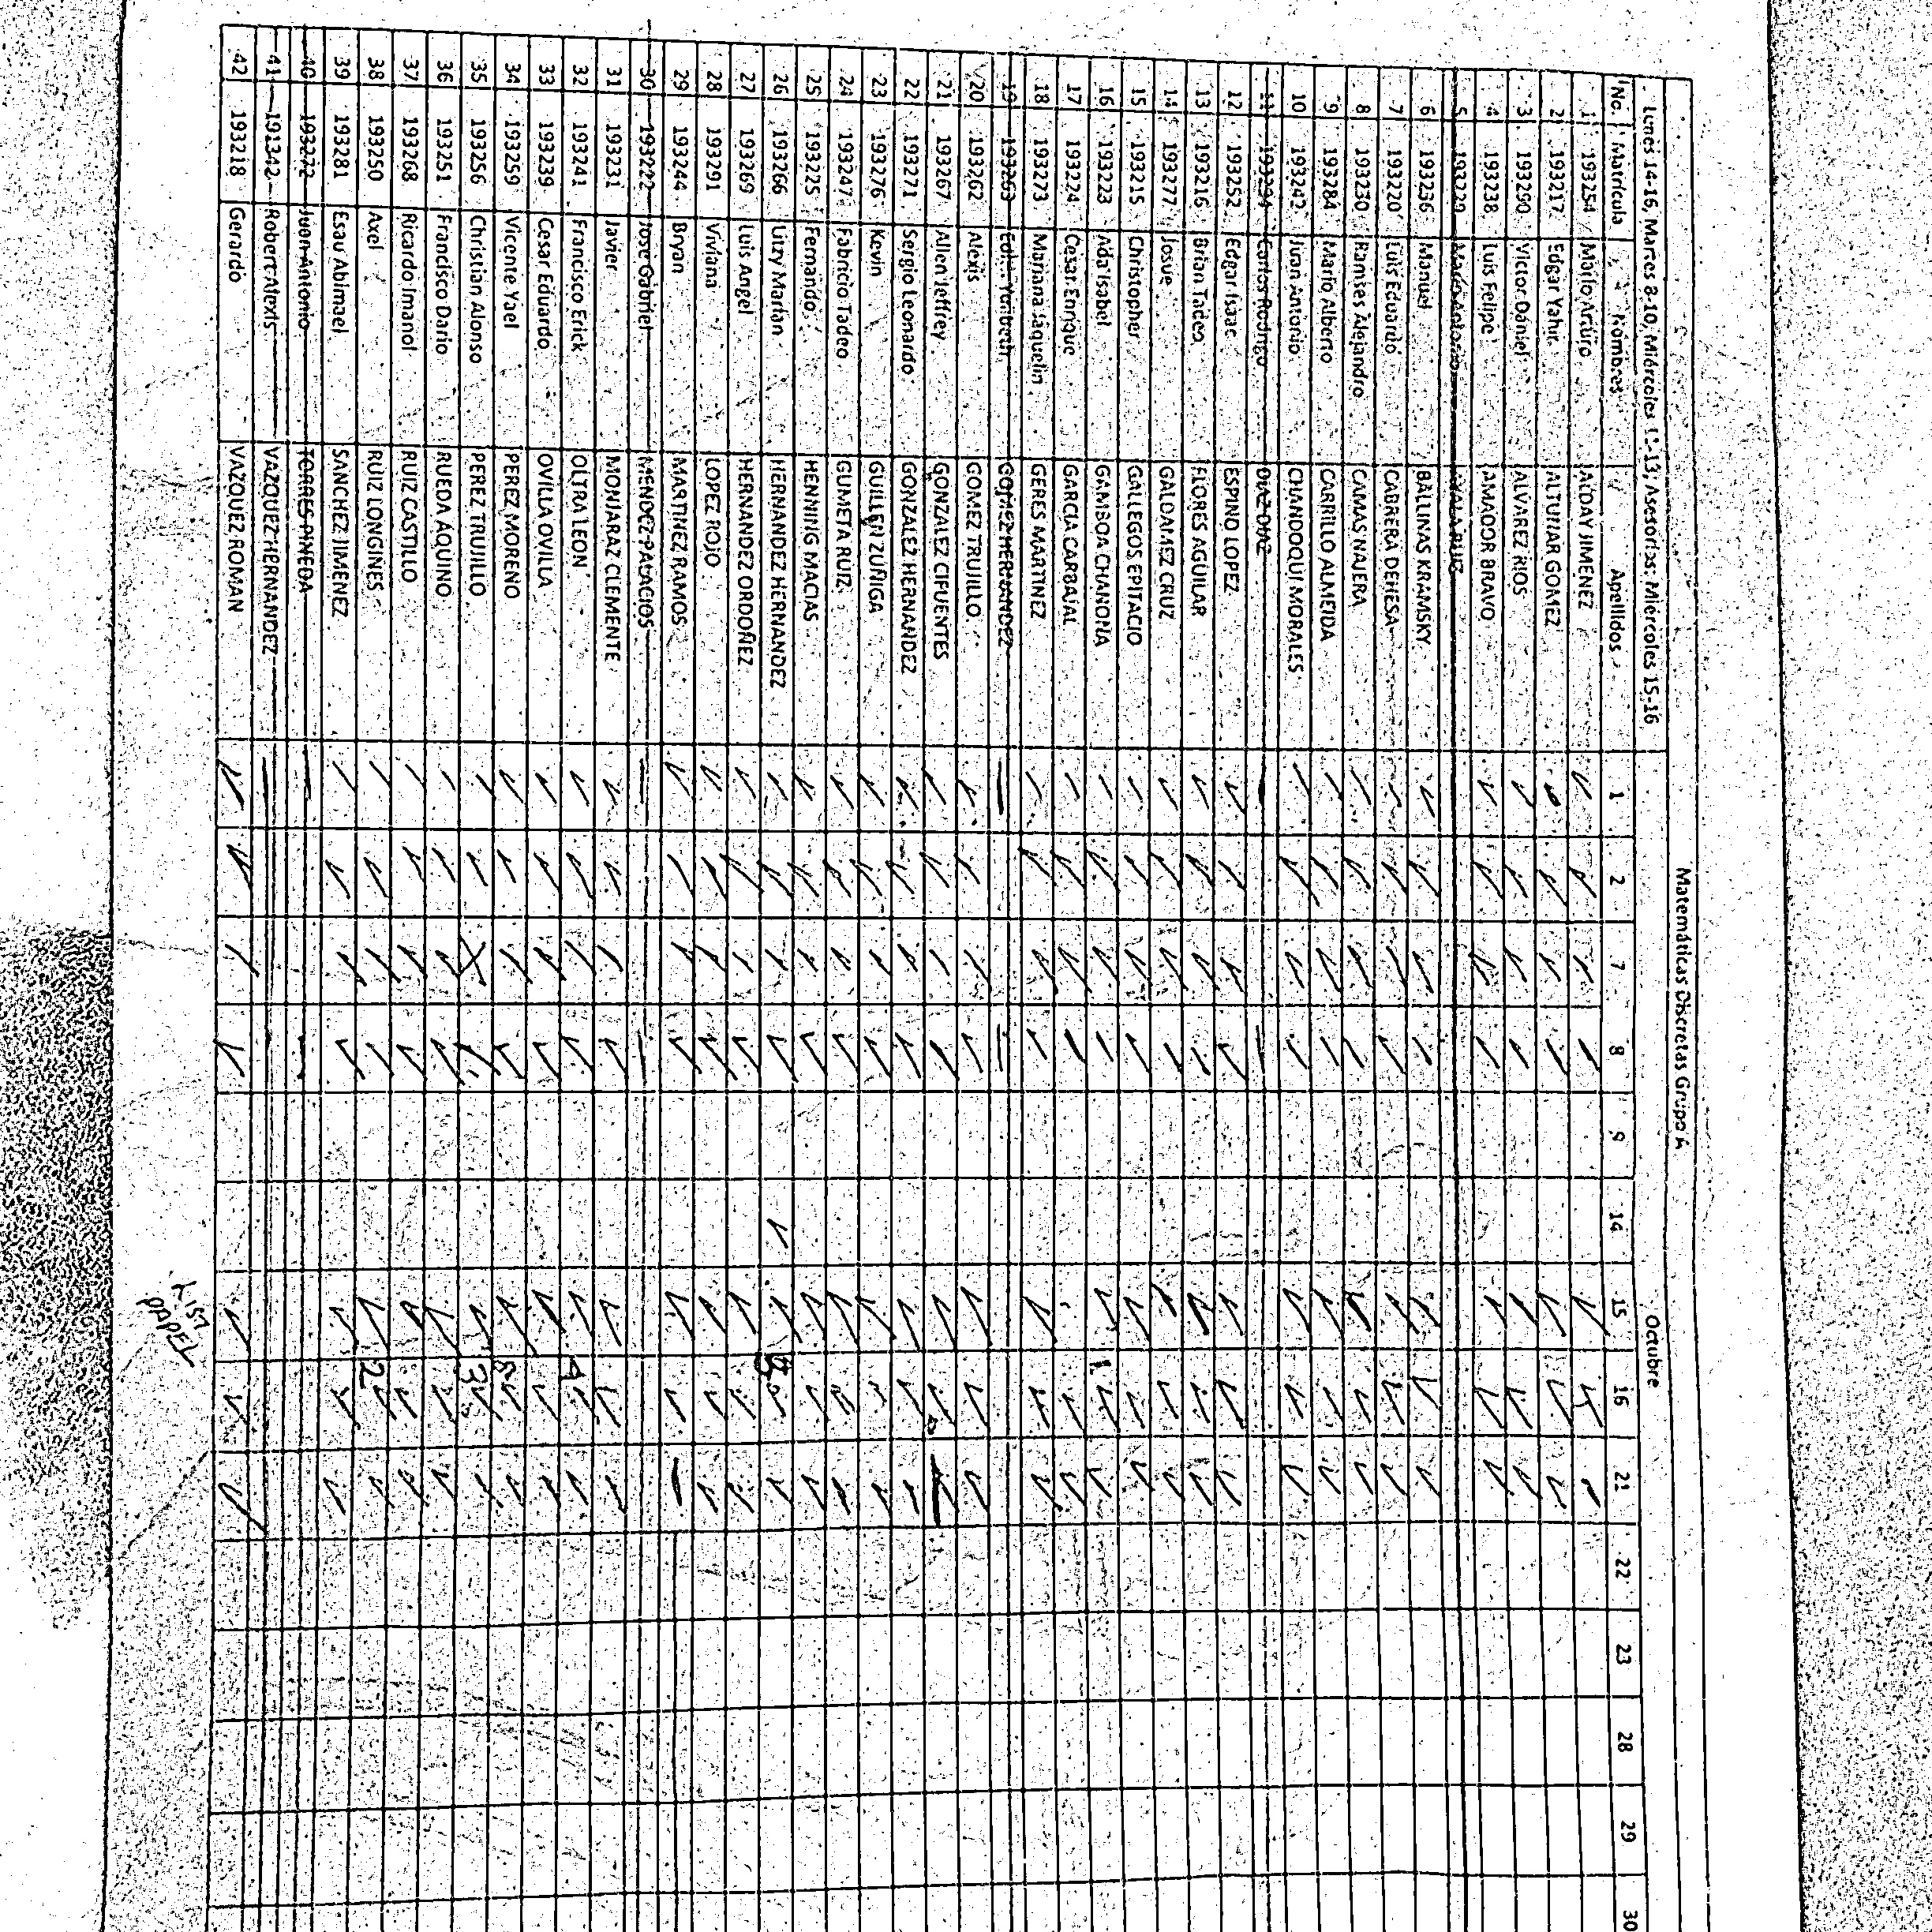 Matemáticas Discretas Grupo A
Lunes 14-16, Martes 8-10, Miércoles 12-13; Asesorías: Miércoles 15-16 Octubre
No. Matrícula Nombres Apellidos 1 2 7 8 9 14 15 16 21 22 23 28 29 30
1 193254 Mario Arturo ALDAY JIMENEZ
2 193217 Edgar Yahir ALTUNAR GOMEZ
3 193290 Victor Daniel ALVAREZ RIOS
4 193238 Luis Felipe AMADOR BRAVO
5 193229 Marco Antonio AYALA RUIZ
6 193236 Manuel BALLINAS KRAMSKY
7 193220 Luis Eduardo CABRERA DEHESA
8 193230 Ramses Alejandro CAMAS NAJERA
9 193284 Mario Alberto CARRILLO ALMEIDA
10 193242 Juan Antonio CHANDOQUI MORALES
11 193294 Carlos Rodrigo DIAZ DIAZ
12 193252 Edgar Isaac ESPINO LOPEZ
13 193216 Brian Tadeo FLORES AGUILAR
14 193277 Josue GALDAMEZ CRUZ
15 193215 Christopher GALLEGOS EPITACIO
16 193223 Ada Isabel GAMBOA CHANONA 1
17 193224 Cesar Enrique GARCIA CARBAJAL
18 193273 Mariana Jaquelin GERES MARTINEZ
19 193263 GOMEZ HERNANDEZ
20 193262 Alexis GOMEZ TRUJILLO
21 193267 Allen Jeffrey GONZALEZ CIFUENTES
22 193271 Sergio Leonardo GONZALEZ HERNANDEZ
23 193276 Kevin GUILLEN ZUÑIGA
24 193247 Fabricio Tadeo GUMETA RUIZ
25 193225 Fernando HENNING MACIAS
26 193266 Litzy Marian HERNANDEZ HERNANDEZ
27 193269 Luis Angel HERNANDEZ ORDOÑEZ
28 193291 Viviana LOPEZ ROJO
29 193244 Bryan MARTINEZ RAMOS
30 193222 Jose Gabriel MENDEZ PALACIOS
31 193231 Javier MONJARAZ CLEMENTE
32 193241 Francisco Erick OLTRA LEON 4
33 193239 Cesar Eduardo OVILLA OVILLA
34 193259 Vicente Yael PEREZ MORENO
35 193256 Christian Alonso PEREZ TRUJILLO 3
36 193251 Francisco Dario RUEDA AQUINO
37 193268 Ricardo Imanol RUIZ CASTILLO
38 193250 Axel RUIZ LONGINES 2
39 193281 Esau Abimael SANCHEZ JIMENEZ
40 193272 Juan Antonio TORRES PINEDA
41 191342 Robert Alexis VAZQUEZ HERNANDEZ
42 193218 Gerardo VAZQUEZ ROMAN
LIST
PAPEL